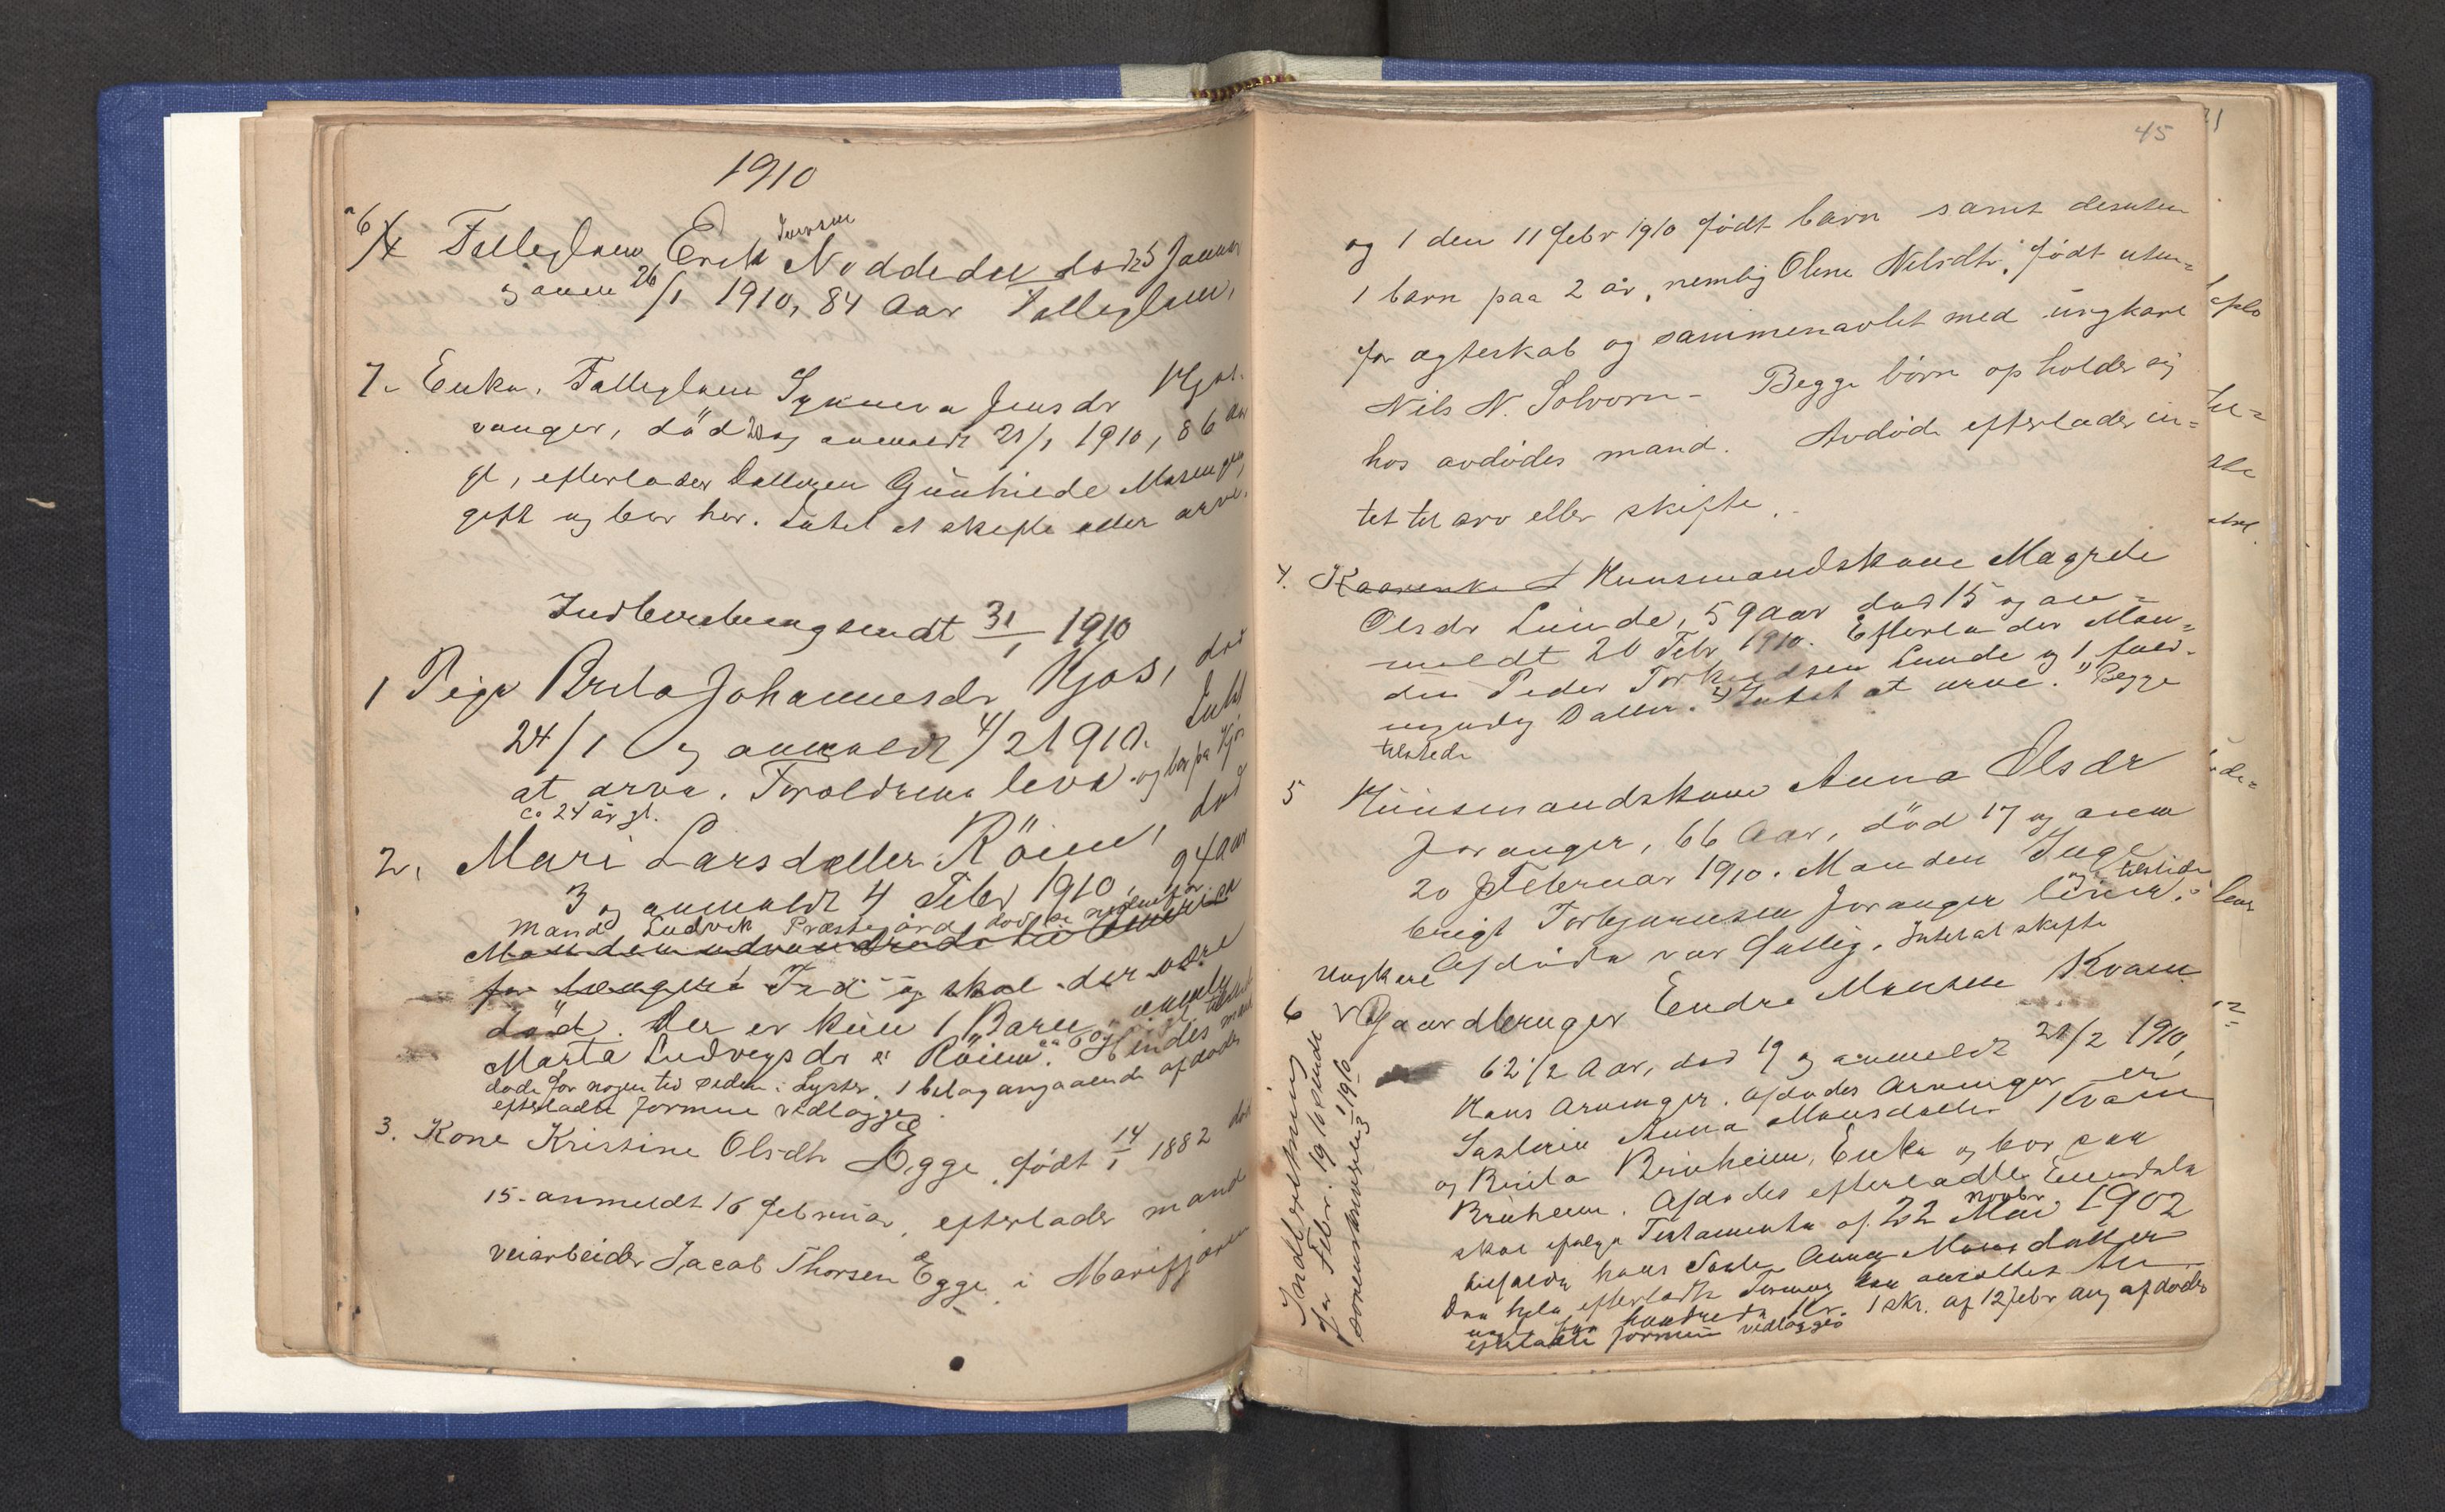 1910
6 Fattiglem Erik Iversen Noddedal død 25 Januar
og anm 26/1 1910, 84 Aar Fattiglem.
7. Enke, Fattiglem Synneva Jensdr
vanger, död 20 og anmeldt 21/1 1910, 86 Aar
gl, efterlader Datteren Gunhilde
gift og bor her. Intet at skifte eller arve.
Indberetning sendt 31/1 1910
1 Pige Brita Johannesdr Kjos, död
24/1 og anmeldt 4/2 1910. Intet
at arve. Foroldrene leve og bor på Kjos
Ca 24 år gl.
2. Mari Larsdatter Röine, död
3 og anmeldt 4 Febr 1910, 94 aar
Mand Ludvik Præstegård döde for
Manden udvandrede til
for længere Tid og skal der være
död. Der er kun 1 Barn
Marta Ludvigsdr Röine. Hindes mand
döde for nogen tid siden i Lyster. 1 bilag angaaende afdödes
efterladte formue vedlægges.
3. Kone Kristine Olsdtr Egge, født 14/1 1882 död
15- anmeldt 16 februar, efterlader mand
veiarbeider Jacob Thorsen Egge i Marifjæren
45
og 1 den 11 febr 1910 født barn samt desuten
1 barn paa 2 år, nemlig Oline Nilsdtr, født uten-
for ægteskab og sammenavlet med ungkarl
Nils N. Solvorn - Begge börn opholder sig
hos avdödes mand. Avdöde efterlader in=
tet til arv eller skifte.
4. Huusmandskone Magrete
Olsdr Lunde, 59 Aar död 15 og an=
meldt 20 Febr 1910. Efterlader Man=
den Peder Torkildsen Lunde og 1 fuld-
myndig Datter. Intet at arve. Begge
tilstede
5 Huusmandskone Anna Olsdr
Joranger, 66 Aar, död 17 og anm
20 Februar 1910. Manden Inge
brigt Torbjørnsen Joranger lever. og tilstede
Afdöde var fattig. Intet at skifte
Ungkarl
6 Gaardbruger Endre Monsen Kvam
62 1/2 Aar, död 19 og anmeldt 20/2 1910,
Hans Arvinger. Afdödes Arvinger er
Søsteren Anna Monsdatter Kvam
og Brita Bruheim, Enke og bor paa
Bruheim. Afdödes efterladte Eiendele
skal ifølge Testamente af 22 Mai Novbr. 1902
tilfalde hans Søster Anna Monsdatter
Den hele efterladte Formue kan ansættes til
hundrede Kr. 1 skr. af 12 febr ang afdödes
efterladte formue vedlægges
Indberetning
for Febr. 1910 sendt
sorenskriveren 3/3 1910